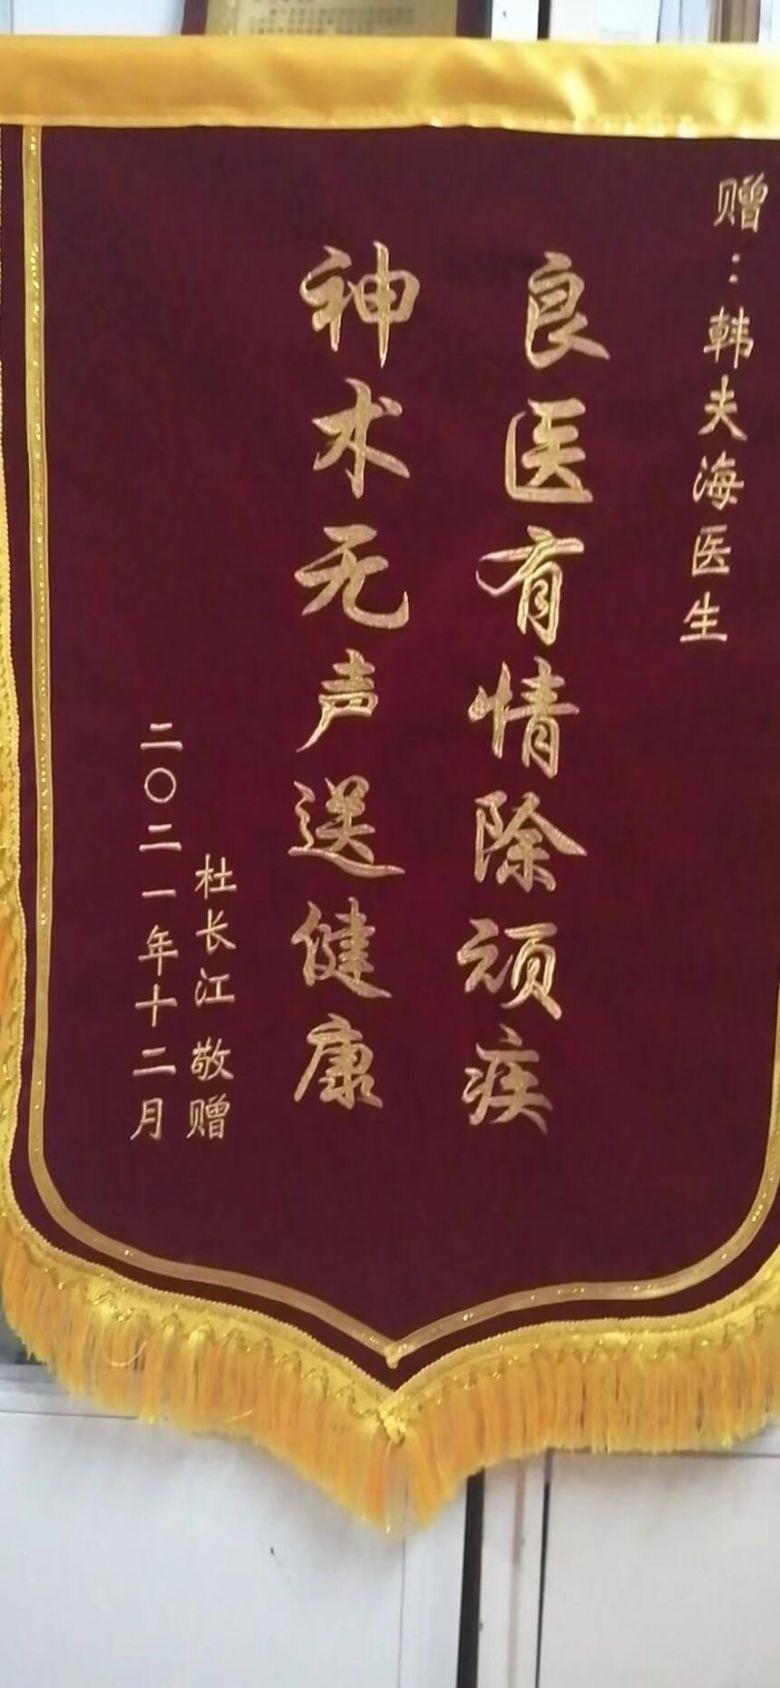 赠：韩夫海医生
良医有情除顽疾
神术无声送健康
杜长江 敬赠
二〇二一年十二月